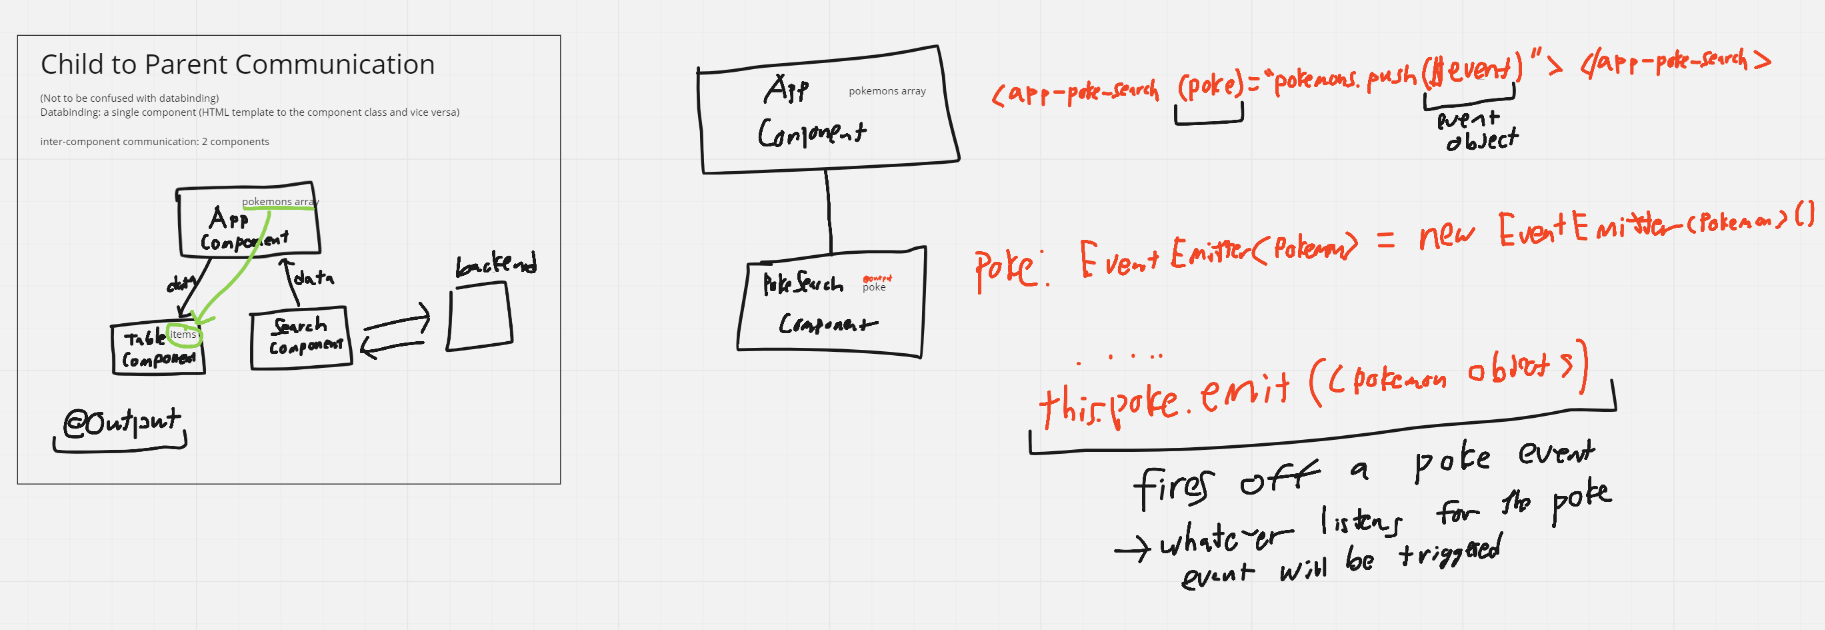 Child to Parent Communication
(Not to be confused with databinding)
Databinding: a single component (HTML template to the component class and vice versa)
inter-component communication: 2 components
pokemons array
App
Component
data
data
backend
Table
items
Component
Search
Component
@Output
App
pokemons array
Component
PokeSearch
poke
Component
<app-poke-search (poke)="pokemons.push($event)"> </app-poke-search>
event
object
poke: EventEmitter<Pokemon> = new EventEmitter<Pokemon>()
. . . . .
this.poke.emit({pokemon object})
fires off a poke event
→ whatever listens for the poke
event will be triggered